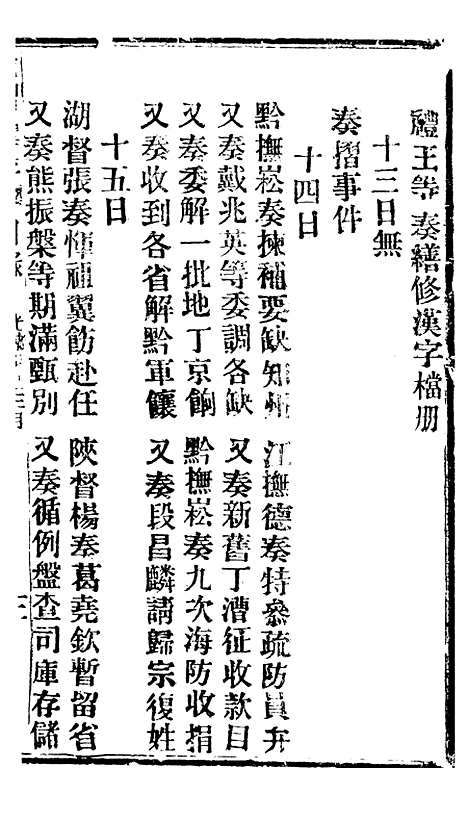 禮王等奏繕修漢字檔册
十三日無
奏摺事件
十四日
黔撫崧奏揀補要缺知州 江撫德奏特參疏防員弁
又奏戴兆英等委調各缺 又奏新舊丁漕征收款目
又奏委解一批地丁京餉 黔撫崧奏九次海防收捐
又奏收到各省解黔軍饟 又奏段昌麟請歸宗復姓
十五日
湖督張奏惲祖翼飭赴任 陝督楊奏葛堯欽暫留省
又奏熊振槃等期滿甄別 又奏循例盤查司庫存儲